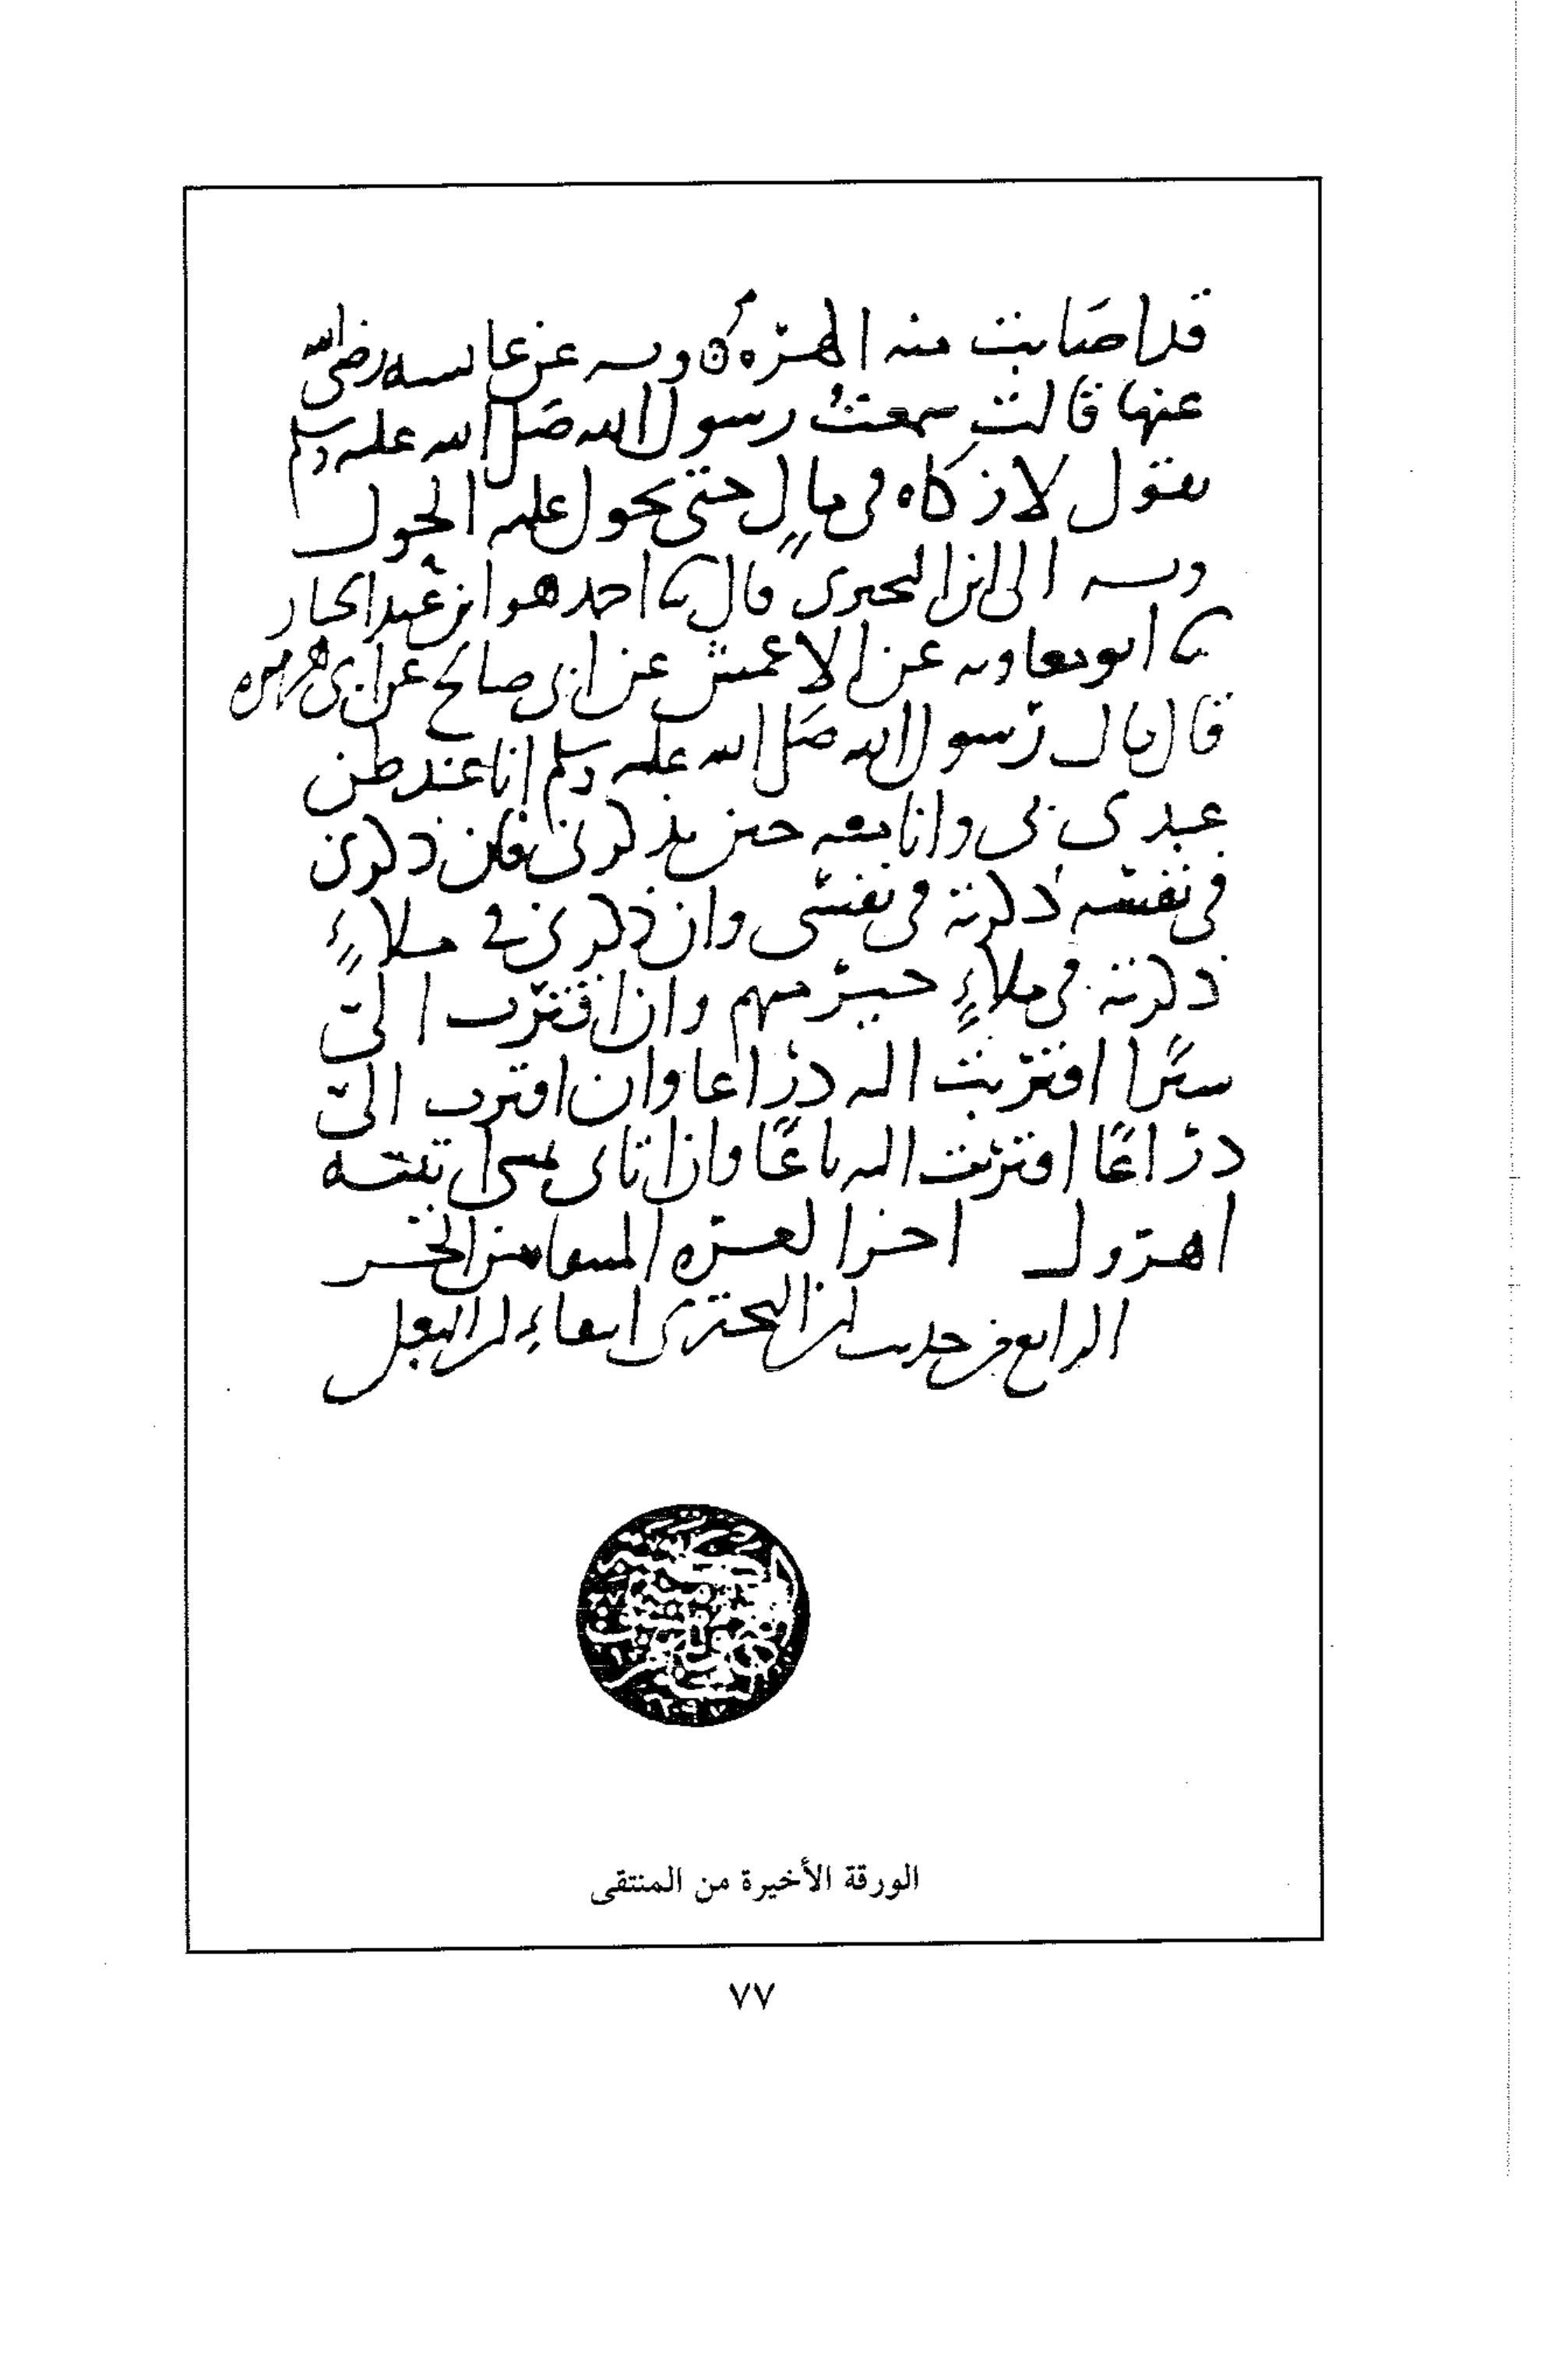 قد اصابت منه الهرة وبه عن عائشه رضى الله
عنها قالت سمعت رسول الله صلى الله عليه وسلم
يقول لا زكاه فى مال حتى يحول عليه الحول
وبه الى ابن البخترى قال ثنا احمد هو ابن عبد الجبار
ثنا ابو معاويه عن الاعمش عن ابى صالح عن ابى هريره
قال قال رسول الله صلى الله عليه وسلم انا عند ظن
عبدى بى وانا معه حين يذكرنى فان ذكرنى
فى نفسه ذكرته فى نفسى وان ذكرنى فى ملاءٍ
ذكرته فى ملاءٍ خير منهم وان اقترب الىّ
شبرًا اقتربت اليه ذراعا وان اقترب الىّ
ذراعًا اقتربت اليه باعًا وان اتانى يمشى اتيته
اهرول اخر العشره المنتقاه من الجزء
الرابع من حديث ابن البخترى انتقاء
الورقة الأخيرة من المنتقى
٧٧